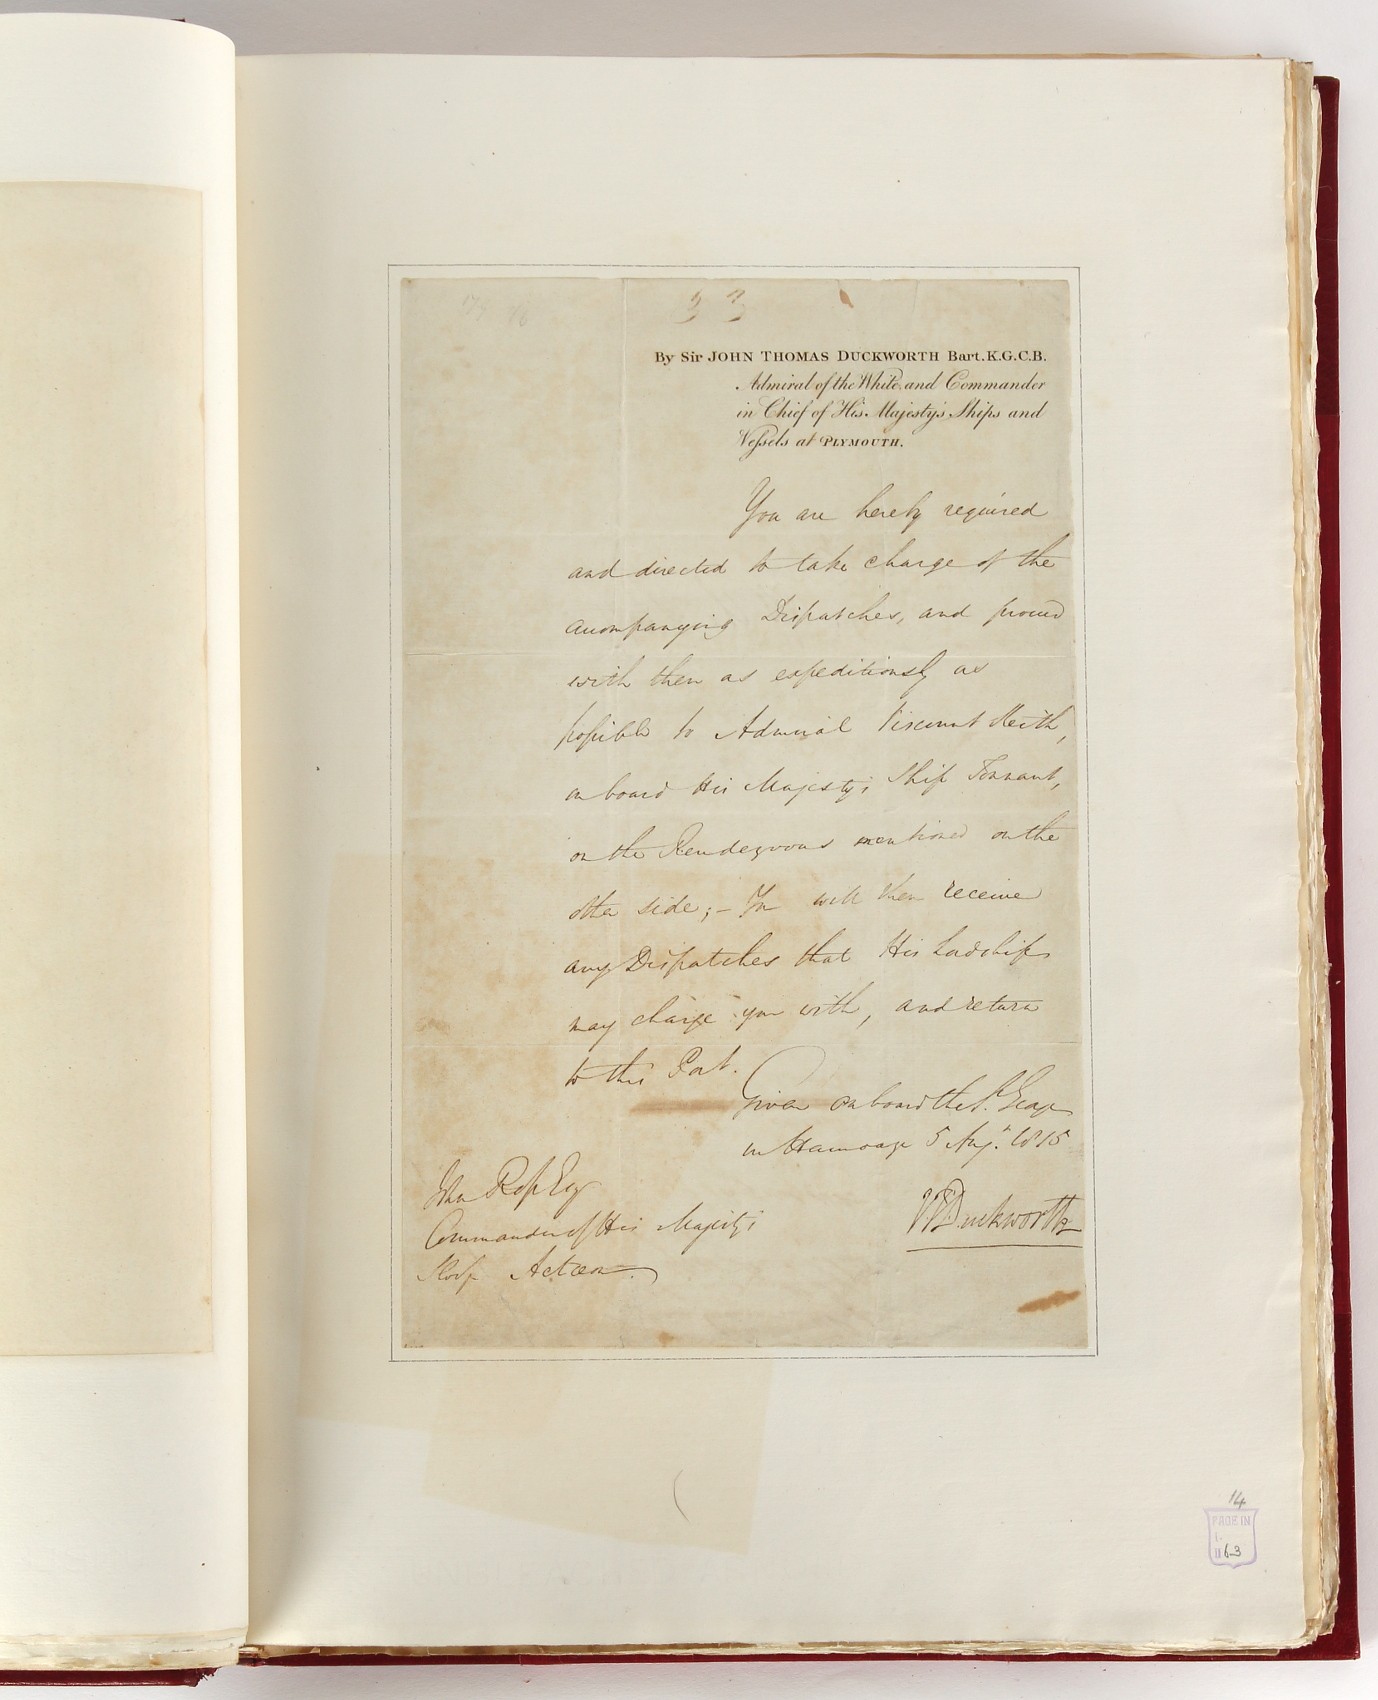 By Sir JOHN THOMAS DUCKWORTH Bart. K.G.C.B.
Admiral of the White and Commander
in Chief of His Majesty's Ships and
Veſsels at PLYMOUTH.
You are hereby required
and directed to take charge of the
accompanying Dispatches, and proceed
with them as expeditiously as
poſsible to Admiral Viscount Keith,
on board His Majesty's Ship Tonnant,
on the Rendezvous mentioned on the
other side; – You will then receive
any Dispatches that His Lordship
may charge you with, and return
to this Port.
Given on board the St. George
in Hamoaze 5 Augt. 1815
John Roſs Esq
Commander of His Majesty's
Sloop Actæon.
JTDuckworth
14
FADE IN
1.
11 63